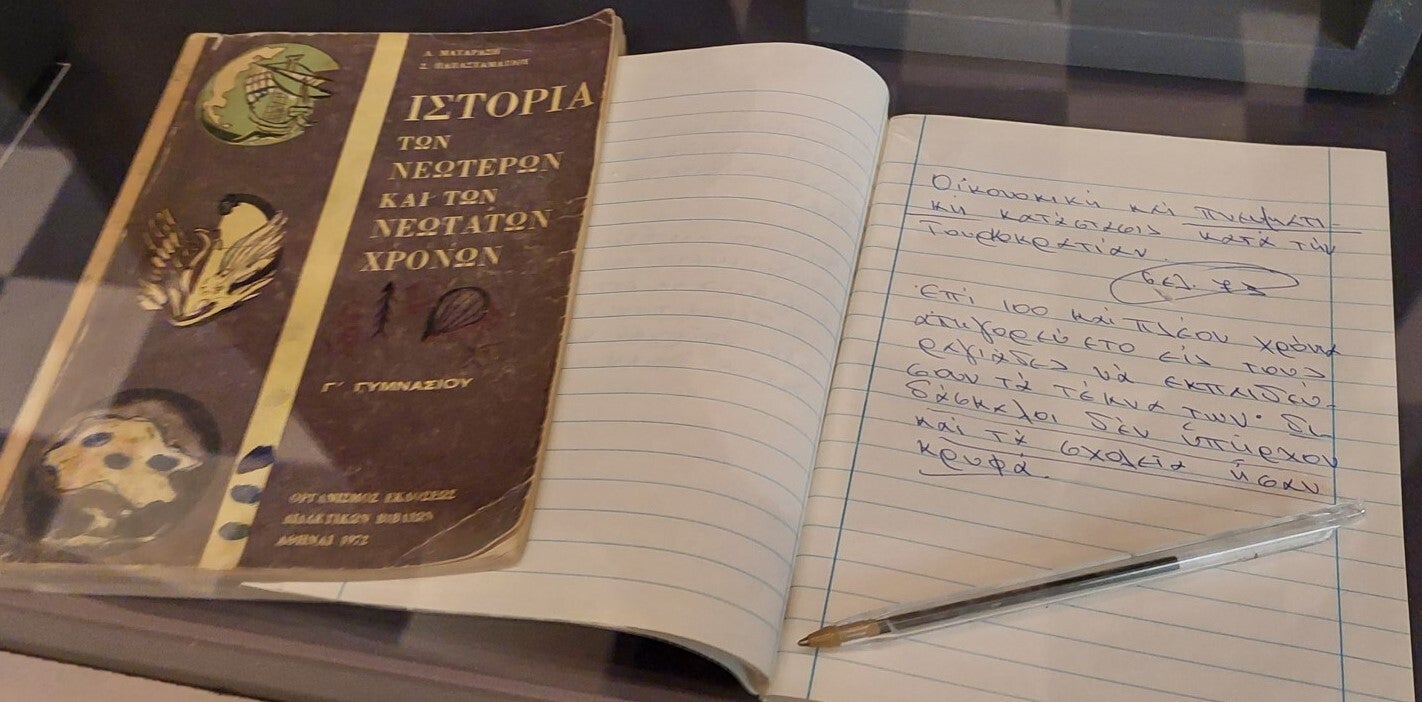 Λ. ΜΑΤΑΡΑΣΗ
Σ. ΠΑΠΑΣΤΑΜΑΤΙΟΥ
ΙΣΤΟΡΙΑ
ΤΩΝ
ΝΕΩΤΕΡΩΝ
ΚΑΙ ΤΩΝ
ΝΕΩΤΑΤΩΝ
ΧΡΟΝΩΝ
Γ΄ ΓΥΜΝΑΣΙΟΥ
ΟΡΓΑΝΙΣΜΟΣ ΕΚΔΟΣΕΩΣ
ΔΙΔΑΚΤΙΚΩΝ ΒΙΒΛΙΩΝ
ΑΘΗΝΑΙ 1972
Οἰκονομική καί πνευματι
κή κατάστασις κατά τήν
Τουρκοκρατίαν.
σελ. 73
Ἐπί 100 καί πλέον χρόνια
ἀπηγορεύετο εἰς τούς
ραγιάδες νά ἐκπαιδεύ-
σουν τά τέκνα των· δι-
δάσκαλοι δέν ὑπῆρχον
καί τά σχολεῖα ἦσαν
κρυφά.